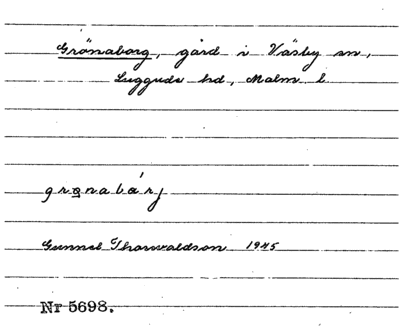 Grönaborg, gård i Väsby sn,
Luggude hd, Malm. l.
grønabárj
Gunnel Thorwaldson 1945
Nr 5698.